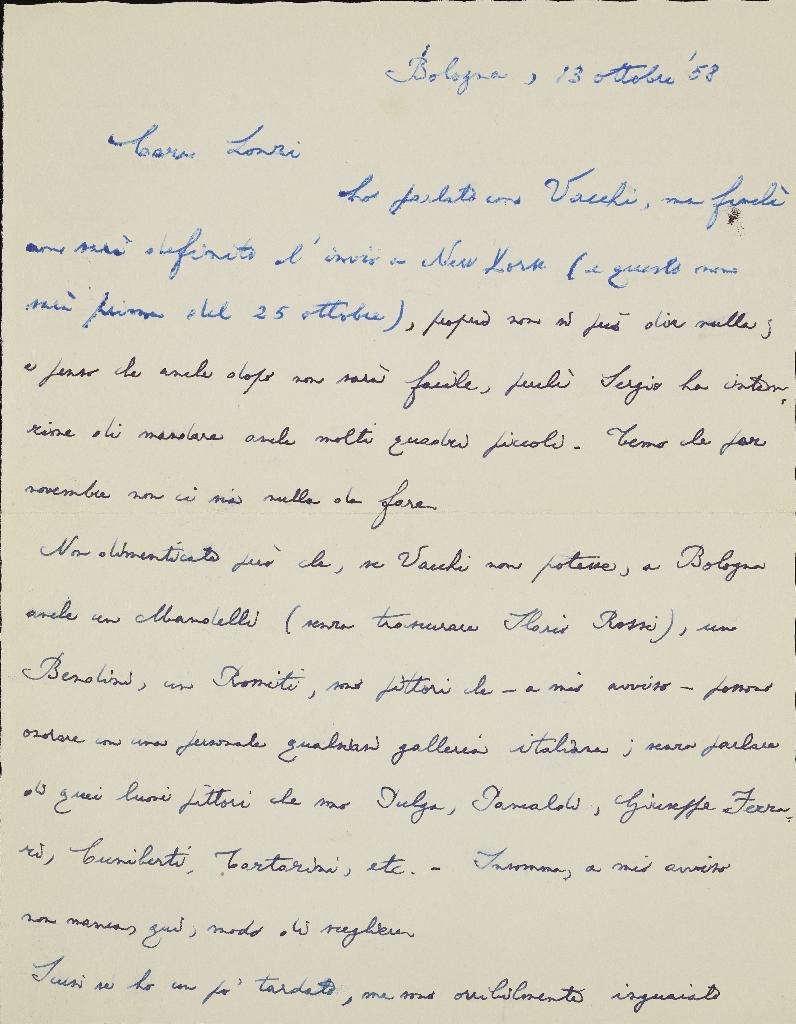 Bologna, 13 ottobre '58
Cara Lonzi
ho parlato con Vacchi, ma finchè
non sarà definito l'invio a New York (e questo non
sarà prima del 25 ottobre), proprio non si può dir nulla;
e penso che anche dopo non sarà facile, perchè Sergio ha inten-
zione di mandare anche molti quadri piccoli. Temo che per
novembre non ci sia nulla da fare.
Non dimenticate però che, se Vacchi non potesse, a Bologna
anche un Mandelli (senza trascurare Ilario Rossi), un
Bendini, un Romiti, sono pittori che - a mio avviso - possono
onorare con una personale qualsiasi galleria italiana; senza parlare
di quei buoni pittori che sono Pulga, Pancaldi, Giuseppe Ferra-
ri, Cuniberti, Tartarini, etc. - Insomma, a mio avviso
non manca, qui, modo di scegliere.
Scusi se ho un po' tardato, ma sono orribilmente inguaiato